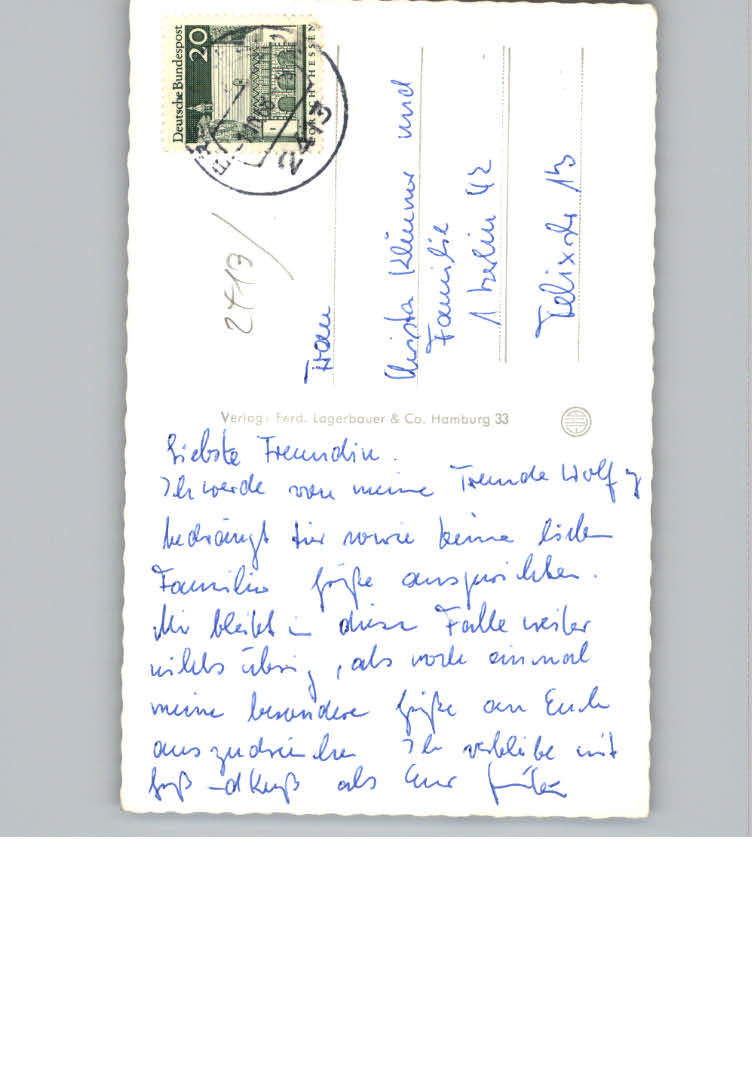 Deutsche Bundespost
20
LORSCH · HESSEN
2413/
Frau
Christa Klümner und
Familie
1 Berlin 42
Felixstr 13
Verlag: Ferd. Lagerbauer & Co. Hamburg 33
Liebste Freundin.
Ich werde von meine Freunde Wolfg
bedrängt für sowie keine lieben
Familie Grüße auszurichten.
Mir bleibt in diesen Falle weiter
nichts übrig, als noch einmal
meine besondere Grüße an Euch
auszudrücken Ich verbleibe mit
Gruß und Kuß als Euer